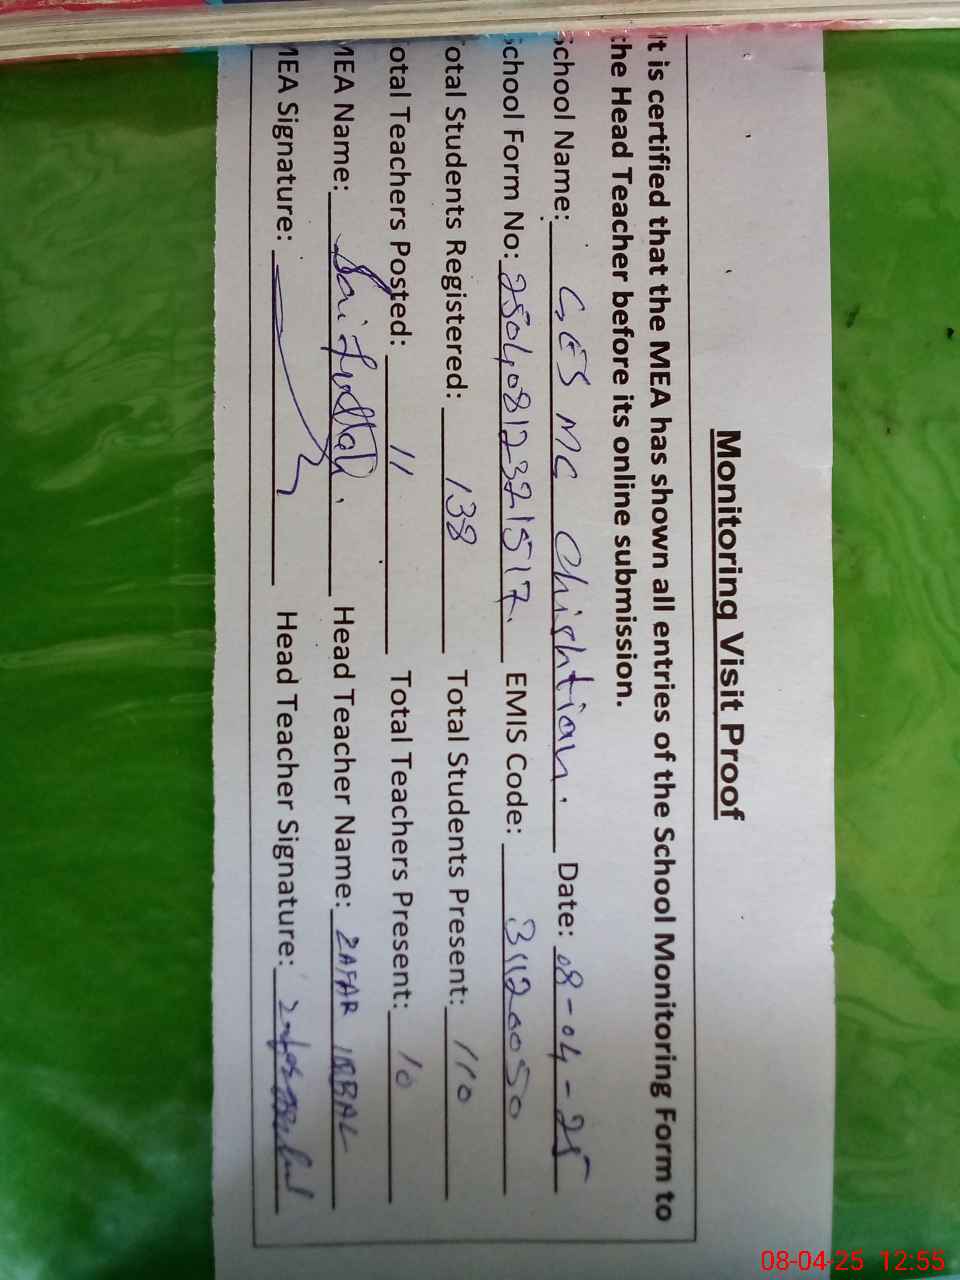 Monitoring Visit Proof
It is certified that the MEA has shown all entries of the School Monitoring Form to
the Head Teacher before its online submission.
School Name: GES MC Chishtian. Date: 08-04-25
School Form No: 25040812321517. EMIS Code: 31120050
Total Students Registered: 138 Total Students Present: 110
Total Teachers Posted: 11 Total Teachers Present: 10
MEA Name: Saifullah. Head Teacher Name: ZAFAR IQBAL
MEA Signature: Head Teacher Signature:
08-04-25 12:55